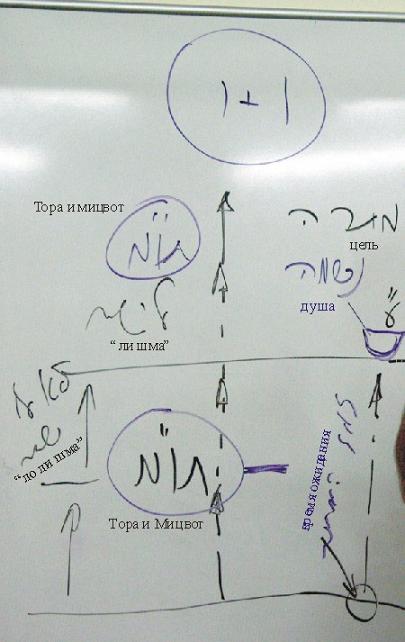 1+1
Тора и мицвот
תו"מ
מטרה
цель
נשמה
душа
לשמה
“ли шма”
לא
לשמה
“ло ли шма”
תו"מ
Тора и Мицвот
זמן
время ожидания